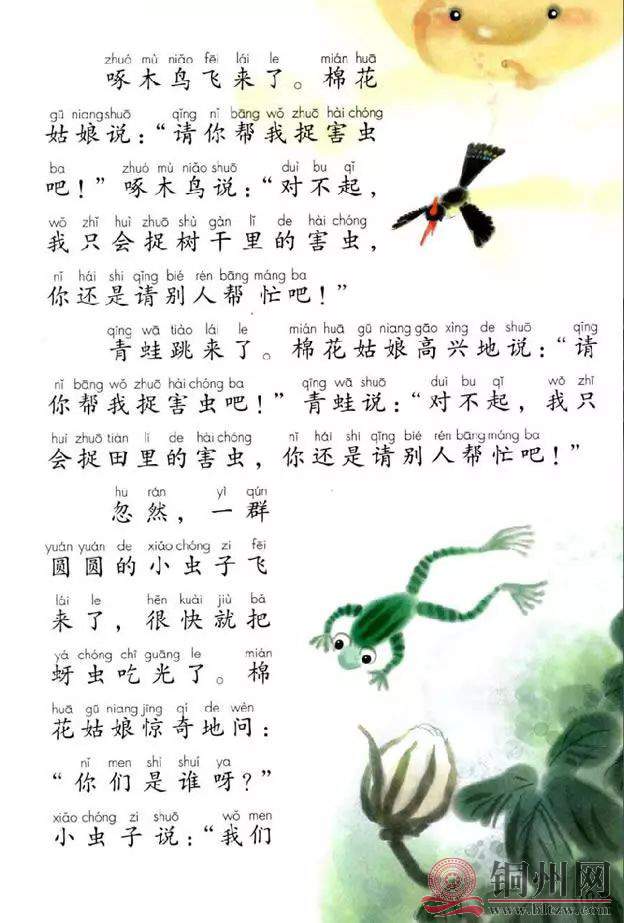 zhuó mù niǎo fēi lái le mián huā
啄木鸟飞来了。棉花
gū niang shuō qǐng nǐ bāng wǒ zhuō hài chóng
姑娘说：“请你帮我捉害虫
ba zhuó mù niǎo shuō duì bu qǐ
吧！”啄木鸟说：“对不起，
wǒ zhǐ huì zhuō shù gàn lǐ de hài chóng
我只会捉树干里的害虫，
nǐ hái shi qǐng bié rén bāng máng ba
你还是请别人帮忙吧！”
qīng wā tiào lái le mián huā gū niang gāo xìng de shuō qǐng
青蛙跳来了。棉花姑娘高兴地说：“请
nǐ bāng wǒ zhuō hài chóng ba qīng wā shuō duì bu qǐ wǒ zhǐ
你帮我捉害虫吧！”青蛙说：“对不起，我只
huì zhuō tián lǐ de hài chóng nǐ hái shi qǐng bié rén bāng máng ba
会捉田里的害虫，你还是请别人帮忙吧！”
hū rán yì qún
忽然，一群
yuán yuán de xiǎo chóng zi fēi
圆圆的小虫子飞
lái le hěn kuài jiù bǎ
来了，很快就把
yá chóng chī guāng le mián
蚜虫吃光了。棉
huā gū niang jīng qí de wèn
花姑娘惊奇地问：
nǐ men shì shuí ya
“你们是谁呀？”
xiǎo chóng zi shuō wǒ men
小虫子说：“我们
铜州网
www.bltzw.com